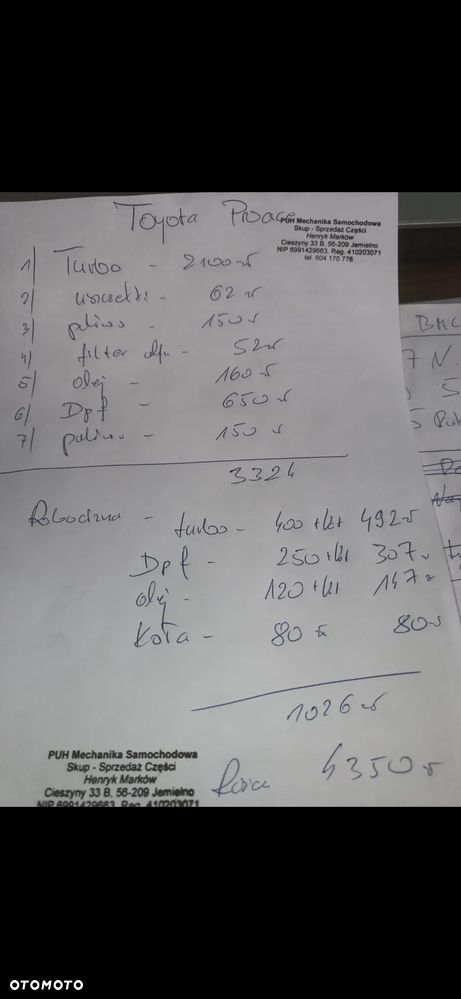 Toyota Proace
PUH Mechanika Samochodowa
Skup - Sprzedaż Części
Henryk Marków
Cieszyny 33 B, 56-209 Jemielno
NIP 6991429663, Reg. 410203071
tel. 604 170 778
1) Turbo - 2100 zł
2) uszczelki - 62 zł
3) paliwo - 150 zł
4) filter olju - 52 zł
5) olej - 160 zł
6) Dpf - 650 zł
7) paliwo - 150 zł
3324
Robocizna - turbo - 400 + 492 zł
Dpf - 250 + 307 zł
olej - 120 + 147 zł
Koła - 80 zł 80 zł
1026 zł
Razem 4350 zł
PUH Mechanika Samochodowa
Skup - Sprzedaż Części
Henryk Marków
Cieszyny 33 B, 56-209 Jemielno
NIP 6991429663, Reg. 410203071
7 N.
5
OTOMOTO